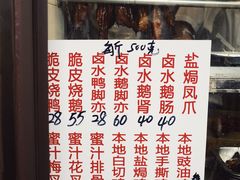 斤500克
脆皮烧鸭 28
脆皮烧鹅 55
卤水鸭脚亦 28
卤水鹅脚亦 60
卤水鹅肾 40
卤水鹅肠 40
盐焗凤爪
蜜汁梅
蜜汁叉
蜜汁排
本地白切
本地盐焗
本地手撕
本地豉油